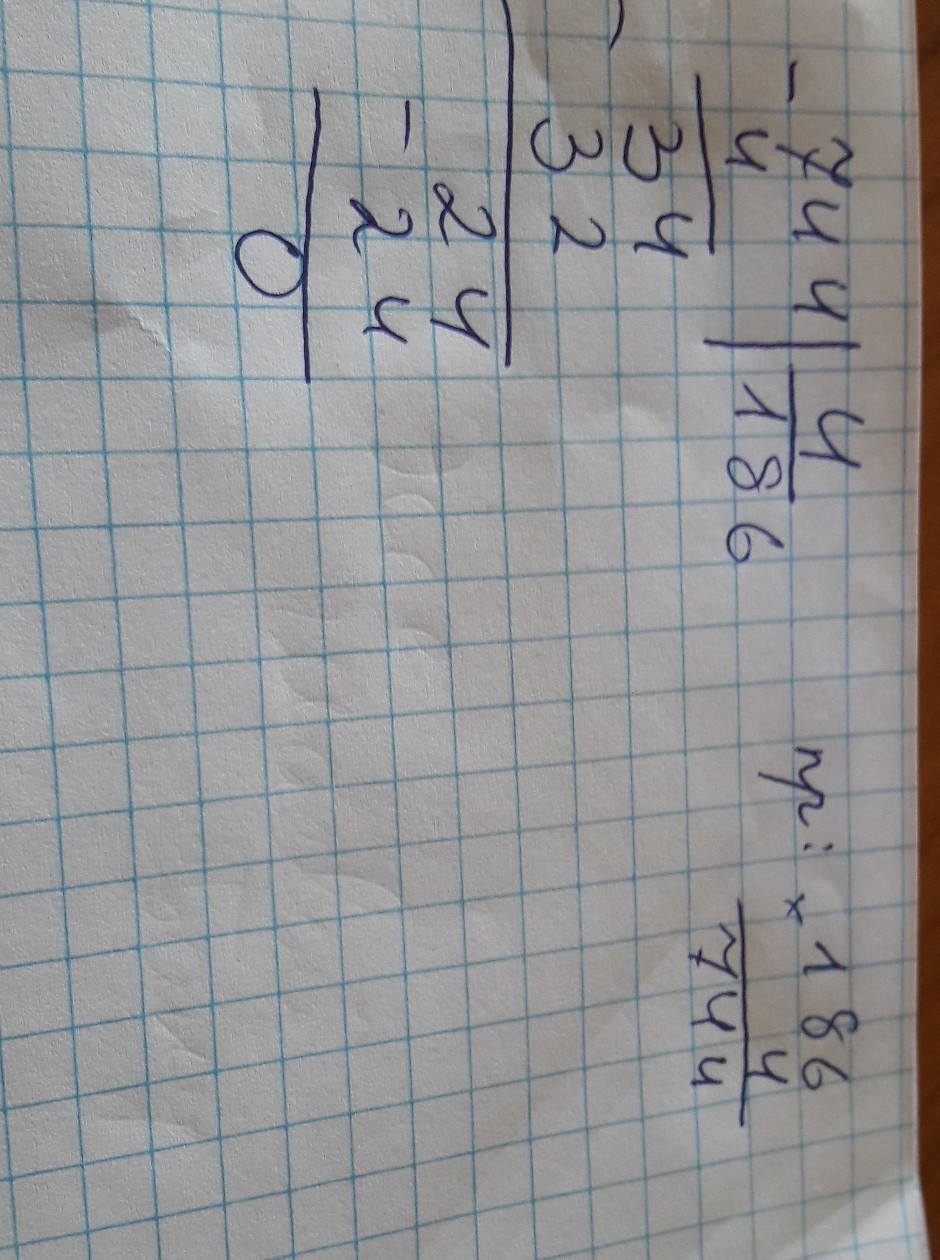 - 744 | 4
4 186
34
32
24
- 24
0
пр: × 186
4
744